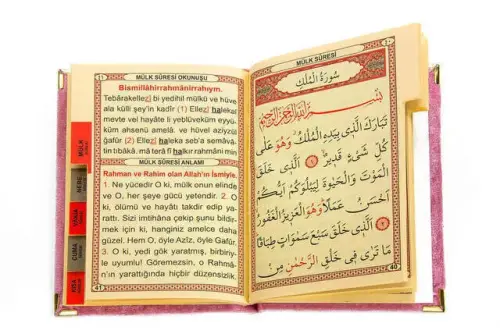 MÜLK SÛRESİ OKUNUŞU
Bismillâhirrahmânirrahıym.
Tebârakellezî bi yedihil mülkü ve hüve
ala külli şey'in kadir (1) Ellezî haleka
mevte vel hayâte li yeblüveküm eyyü-
küm ahsenü amelâ ve hüvel azîyzül
ğafûr (2) Ellezî haleka seb'a semâvâ-
tin tıbâkâ. mâ terâ fî halkır rahmâni min
MÜLK SÛRESİ ANLAMI
Rahman ve Rahim olan Allah'ın İsmiyle.
1. Ne yücedir O ki, mülk onun elinde
ve O, her şeye gücü yetendir. 2. O
ki, ölümü ve hayatı takdir edip yarat-
tı. Sizi imtihâna çekip şunu bildir-
mek için ki, hanginiz amelce daha
güzel. Hem O, öyle Azîz, öyle Gafûr.
3. O ki, yedi gök yaratmış, birbiriy-
le uyumlu! Göremezsin, o Rahmâ-
n'ın yarattığında hiçbir düzensizlik.
41
MÜLK
YASİN
CUMA
MÜLK SÛRESİ
سُورَةُ الْمُلْكِ
بِسْمِ اللّٰهِ الرَّحْمٰنِ الرَّحِيمِ
تَبَارَكَ الَّذِى بِيَدِهِ الْمُلْكُ وَهُوَ عَلٰى
كُلِّ شَىْءٍ قَدِيرٌ ١ الَّذِى خَلَقَ
الْمَوْتَ وَالْحَيٰوةَ لِيَبْلُوَكُمْ اَيُّكُمْ
اَحْسَنُ عَمَلًا وَهُوَ الْعَزِيزُ الْغَفُورُ
٢ الَّذِى خَلَقَ سَبْعَ سَمٰوَاتٍ طِبَاقًا
مَا تَرٰى فِى خَلْقِ الرَّحْمٰنِ مِنْ
40